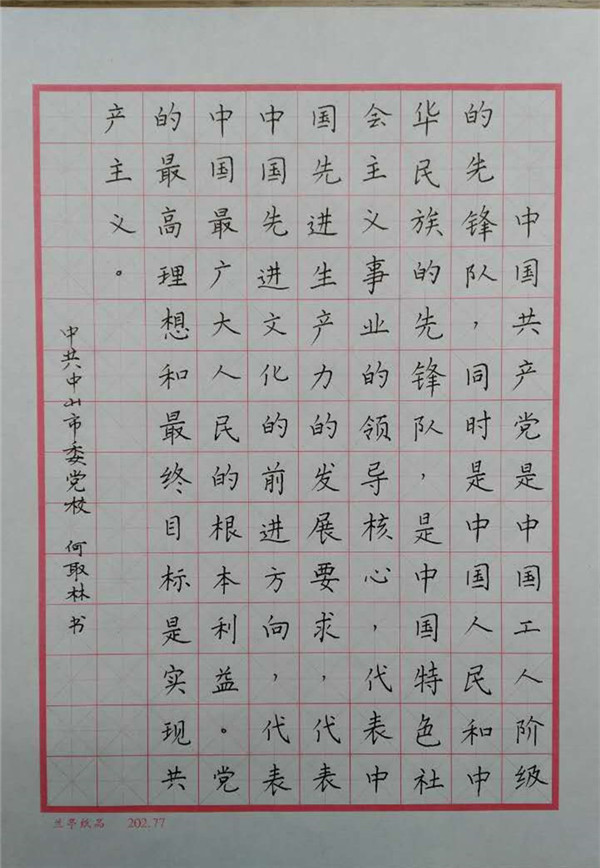 中国共产党是中国工人阶级
的先锋队，同时是中国人民和中
华民族的先锋队，是中国特色社
会主义事业的领导核心，代表中
国先进生产力的发展要求，代表
中国先进文化的前进方向，代表
中国最广大人民的根本利益。党
的最高理想和最终目标是实现共
产主义。
中共中山市委党校 何取林书
兰亭纸品 202.77